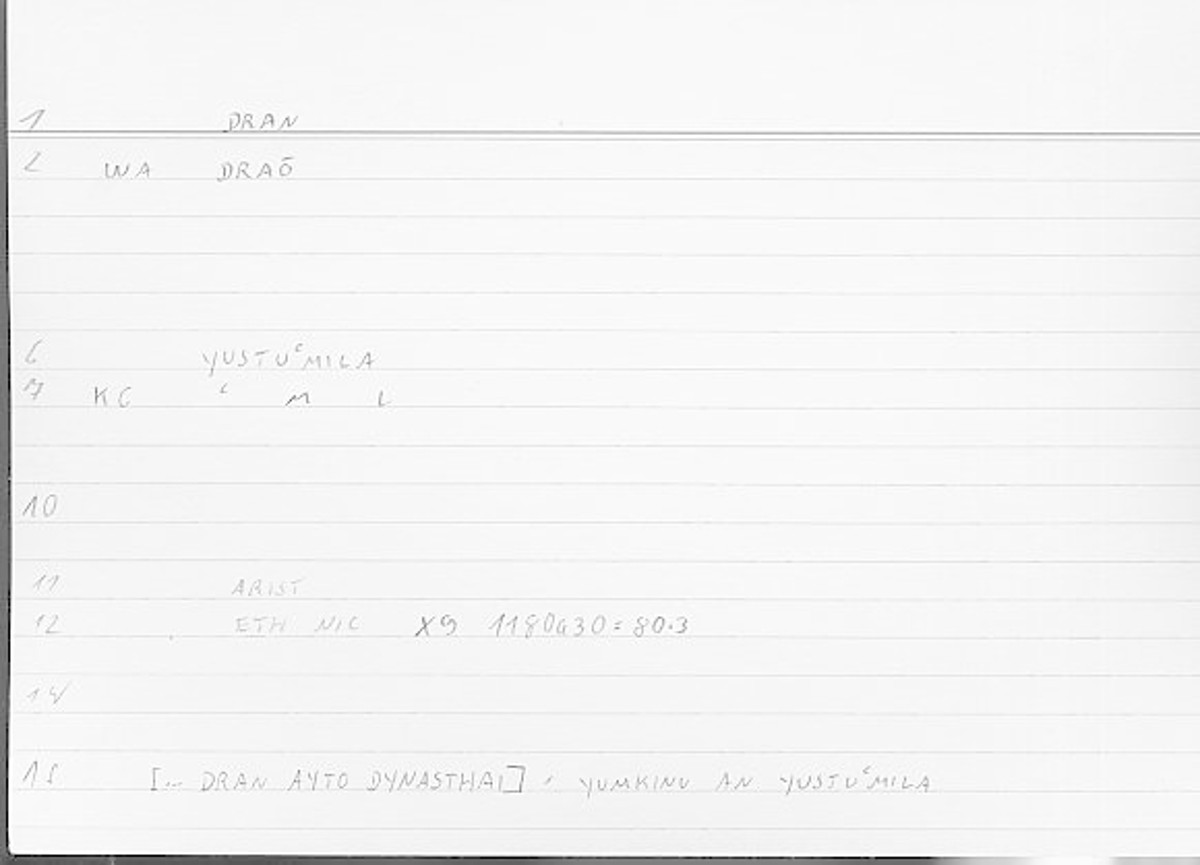 1 DRAN
2 WA DRAŌ
6 YUSTUʿMILA
7 KG ʿ M L
10
11 ARIST
12 ETH NIC X9 1180a30 = 80.3
14
15 [... DRAN AYTO DYNASTHAI] , YUMKINU AN YUSTUʿMILA